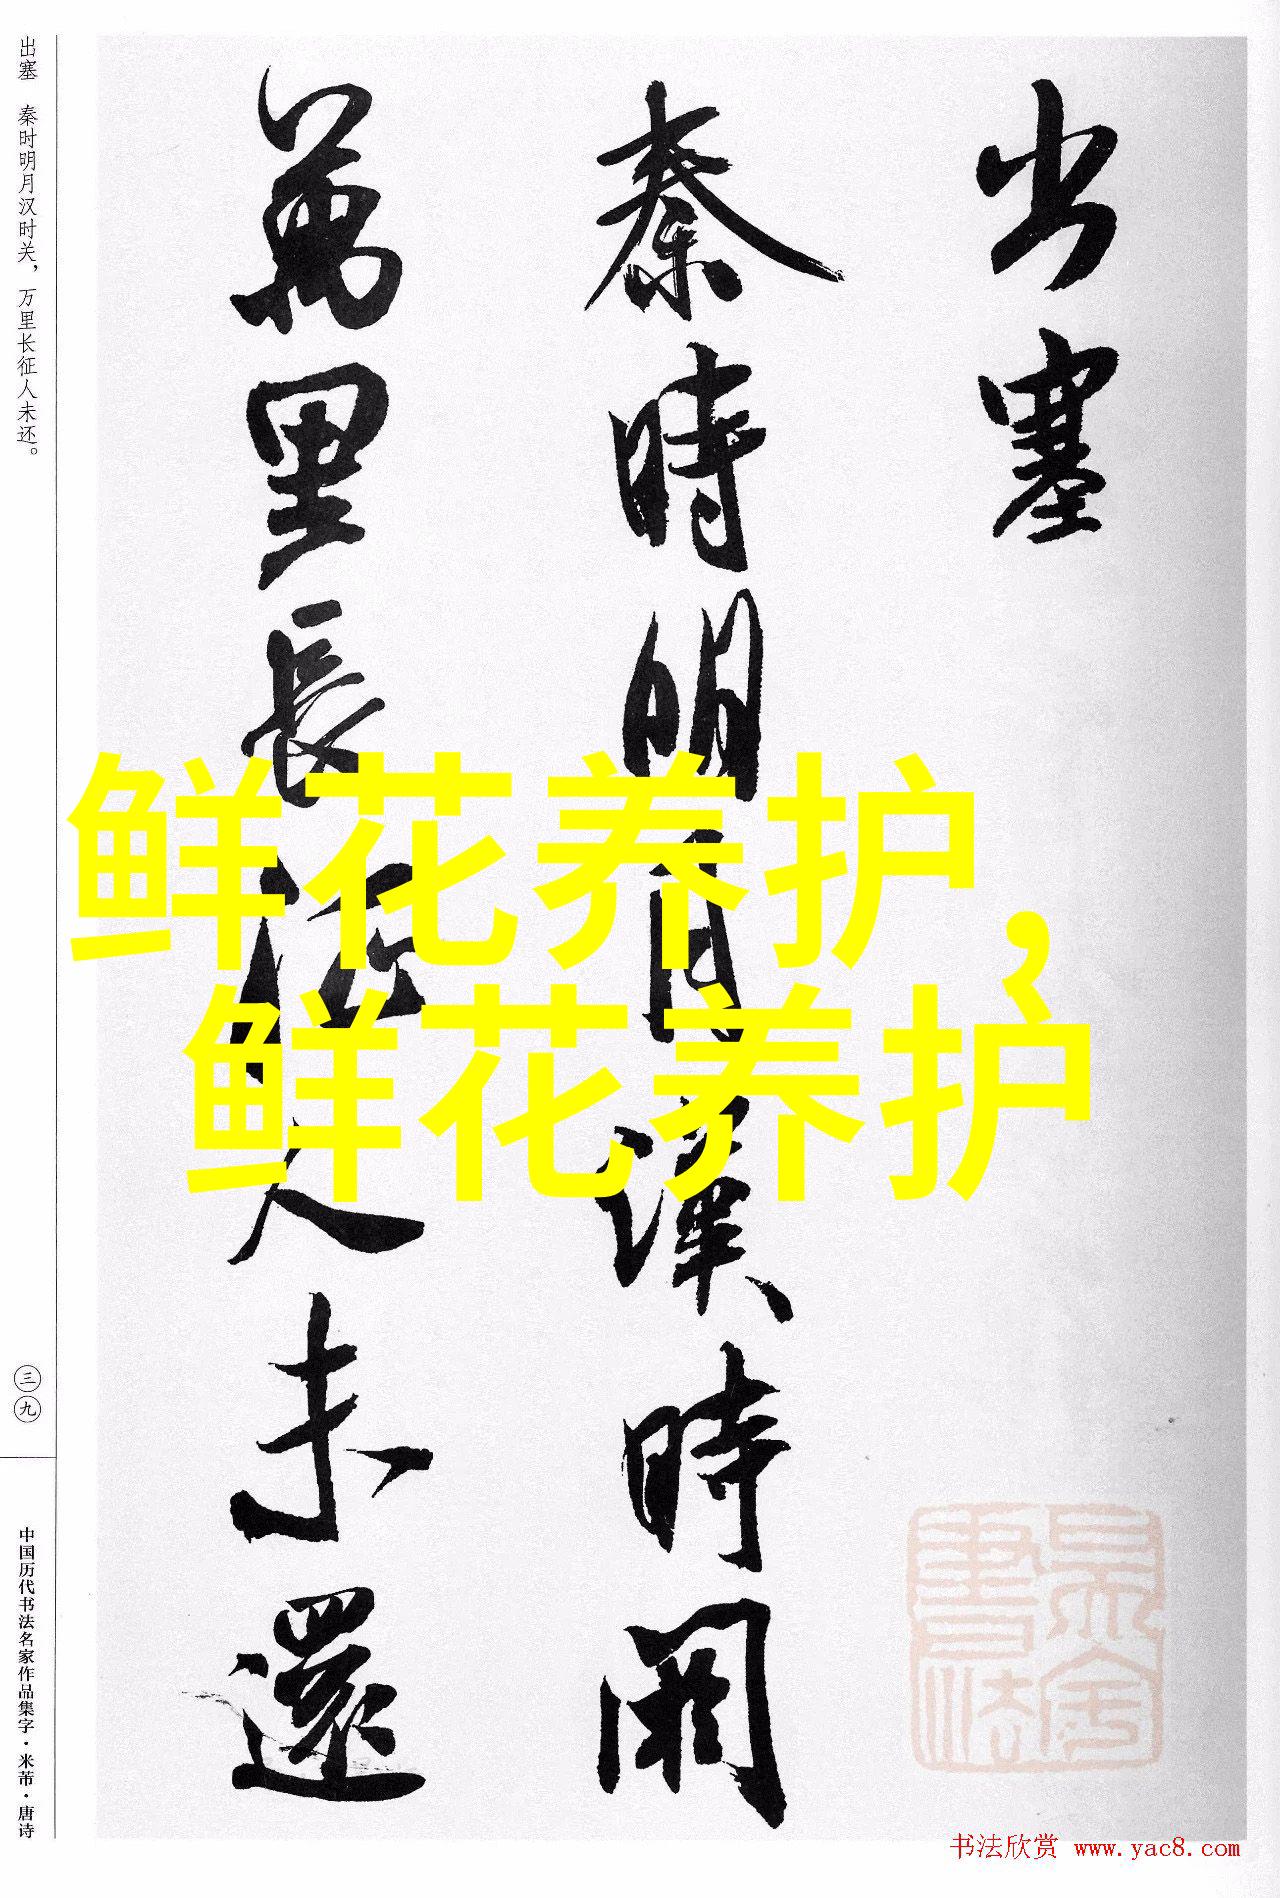 出塞
秦時明月漢時関
萬里長征人未還
出塞 秦时明月汉时关，万里长征人未还。
三九
中国历代书法名家作品集字·米芾·唐诗
鲜花养护，
鲜花养护
书法欣赏 www.yac8.com